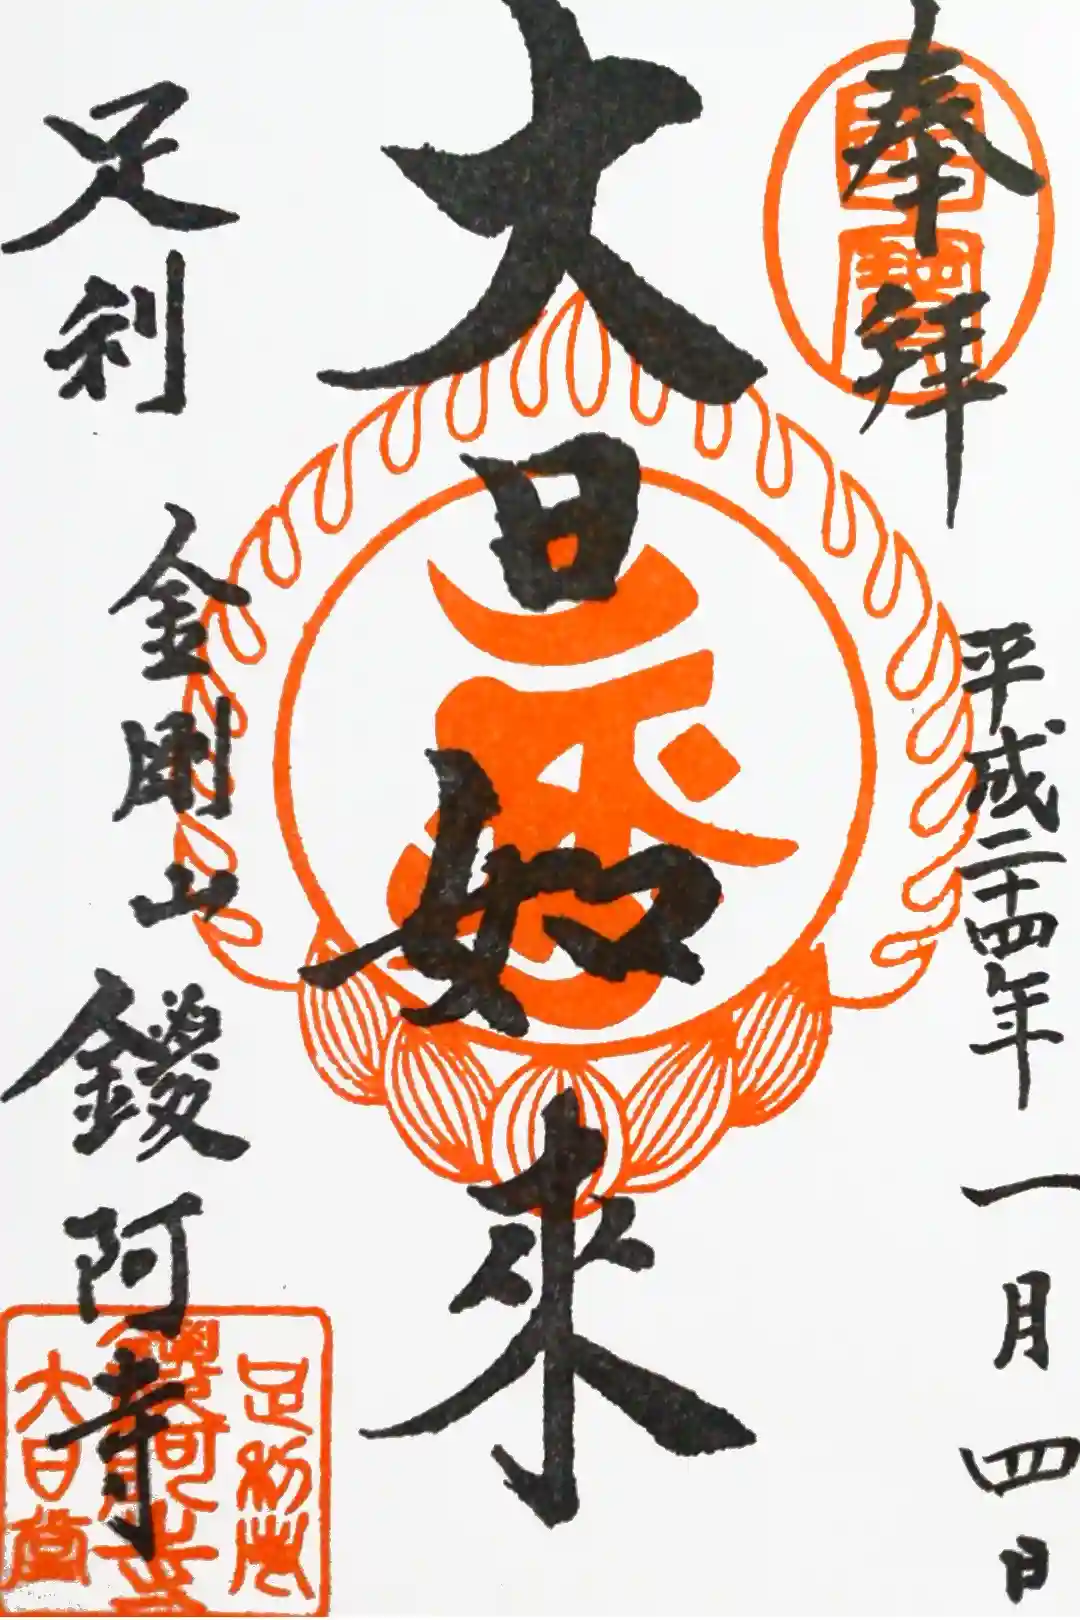 奉拜
平成二十四年一月四日
大日如来
足利 金剛山 鑁阿寺
足利市
鑁阿寺
大日堂